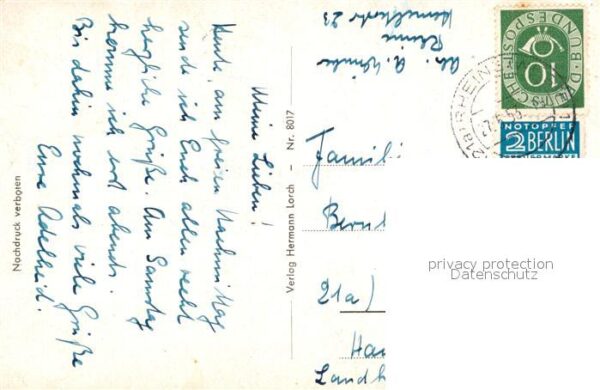 Meine Lieben!
Heute, am freien Nachmittag
sende ich Euch allen recht
herzliche Grüße. Am Samstag
komme ich erst abends.
Bis dahin nochmals viele Grüße
Eure Adelheid.
Nachdruck verboten
Verlag Hermann Lorch - Nr. 8017
Abs. A.
Rheine
23
DEUTSCHE BUNDESPOST
10
RHEINE
NOTOPFER
2 BERLIN
STEUERMARKE
Famili
Bern
21a)
Ha
Landk
privacy protection
Datenschutz